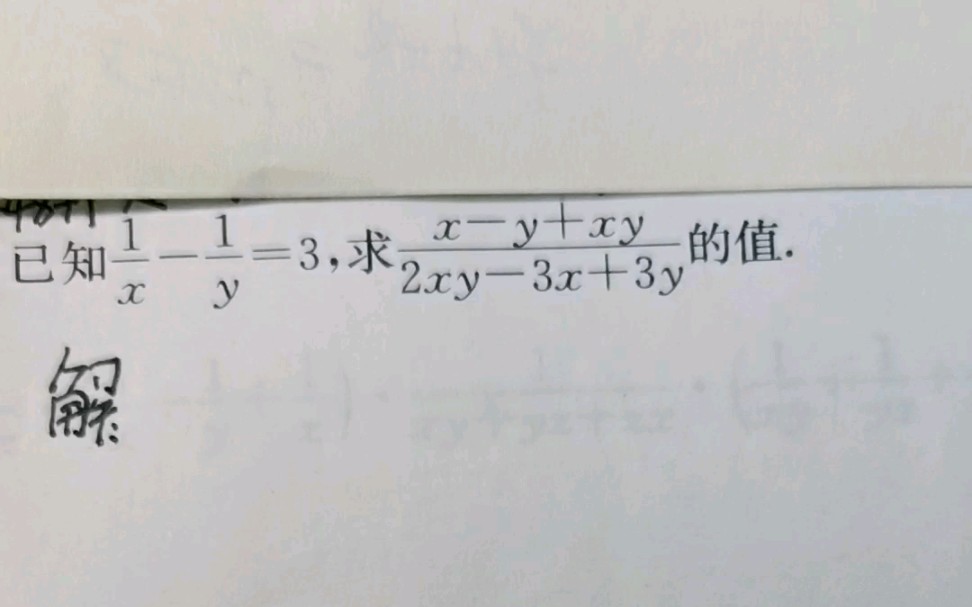 已知1/x-1/y=3,求(x-y+xy)/(2xy-3x+3y)的值.
解